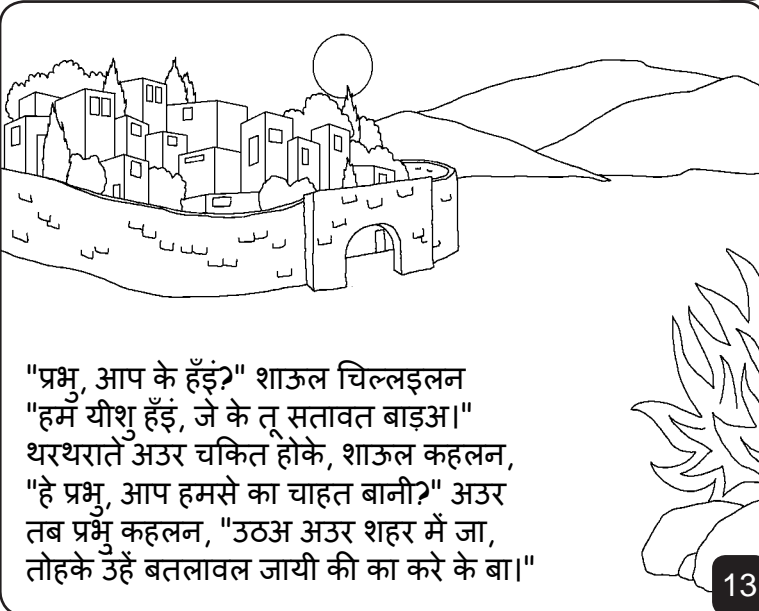 "प्रभु, आप के हँइं?" शाऊल चिल्लइलन
"हम यीशु हँइं, जे के तू सतावत बाड़अ।"
थरथराते अउर चकित होके, शाऊल कहलन,
"हे प्रभु, आप हमसे का चाहत बानी?" अउर
तब प्रभु कहलन, "उठअ अउर शहर में जा,
तोहके उंहें बतलावल जायी की का करे के बा।"
13